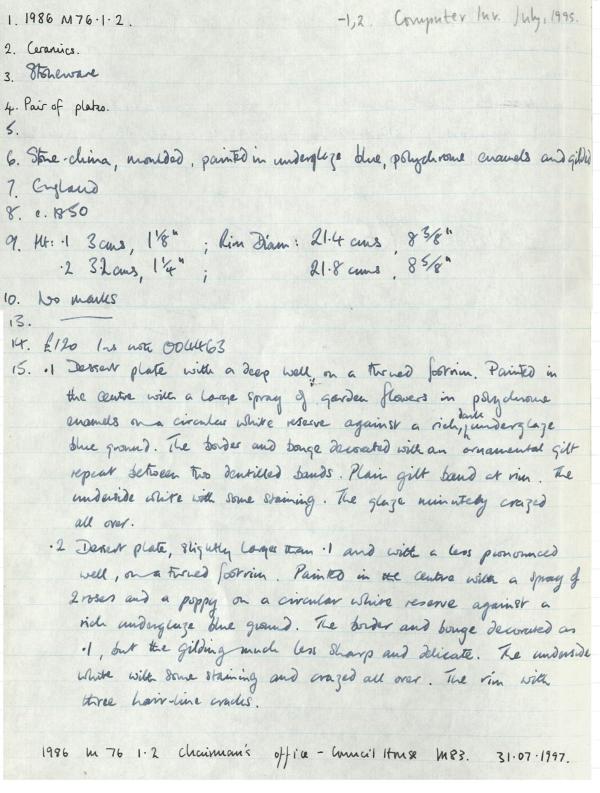 1. 1986 M76.1.2. -1,2. Computer Inv. July, 1995.
2. Ceramics.
3. Stoneware
4. Pair of plates.
5.
6. Stone-china, moulded, painted in underglaze blue, polychrome enamels and gilded
7. England
8. c. 1850
9. Ht: .1 3 cms, 1 1/8" ; Rim Diam: 21.4 cms, 8 3/8"
.2 3.2 cms, 1 1/4" ; 21.8 cms, 8 5/8"
10. No marks
13.
14. £120 Ins note 004463
15. .1 Dessert plate with a deep well, on a turned footrim. Painted in
the centre with a large spray of garden flowers in polychrome
enamels on a circular white reserve against a rich, dark underglaze
blue ground. The border and bouge decorated with an ornamental gilt
repeat between two dentilled bands. Plain gilt band at rim. The
underside white with some staining. The glaze minutely crazed
all over.
.2 Dessert plate, slightly larger than .1 and with a less pronounced
well, on a turned footrim. Painted in the centre with a spray of
2 roses and a poppy on a circular white reserve against a
rich underglaze blue ground. The border and bouge decorated as
.1, but the gilding much less sharp and delicate. The underside
white with some staining and crazed all over. The rim with
three hair-line cracks.
1986 M 76 1.2 Chairman's office - Council House M83. 31.07.1997.